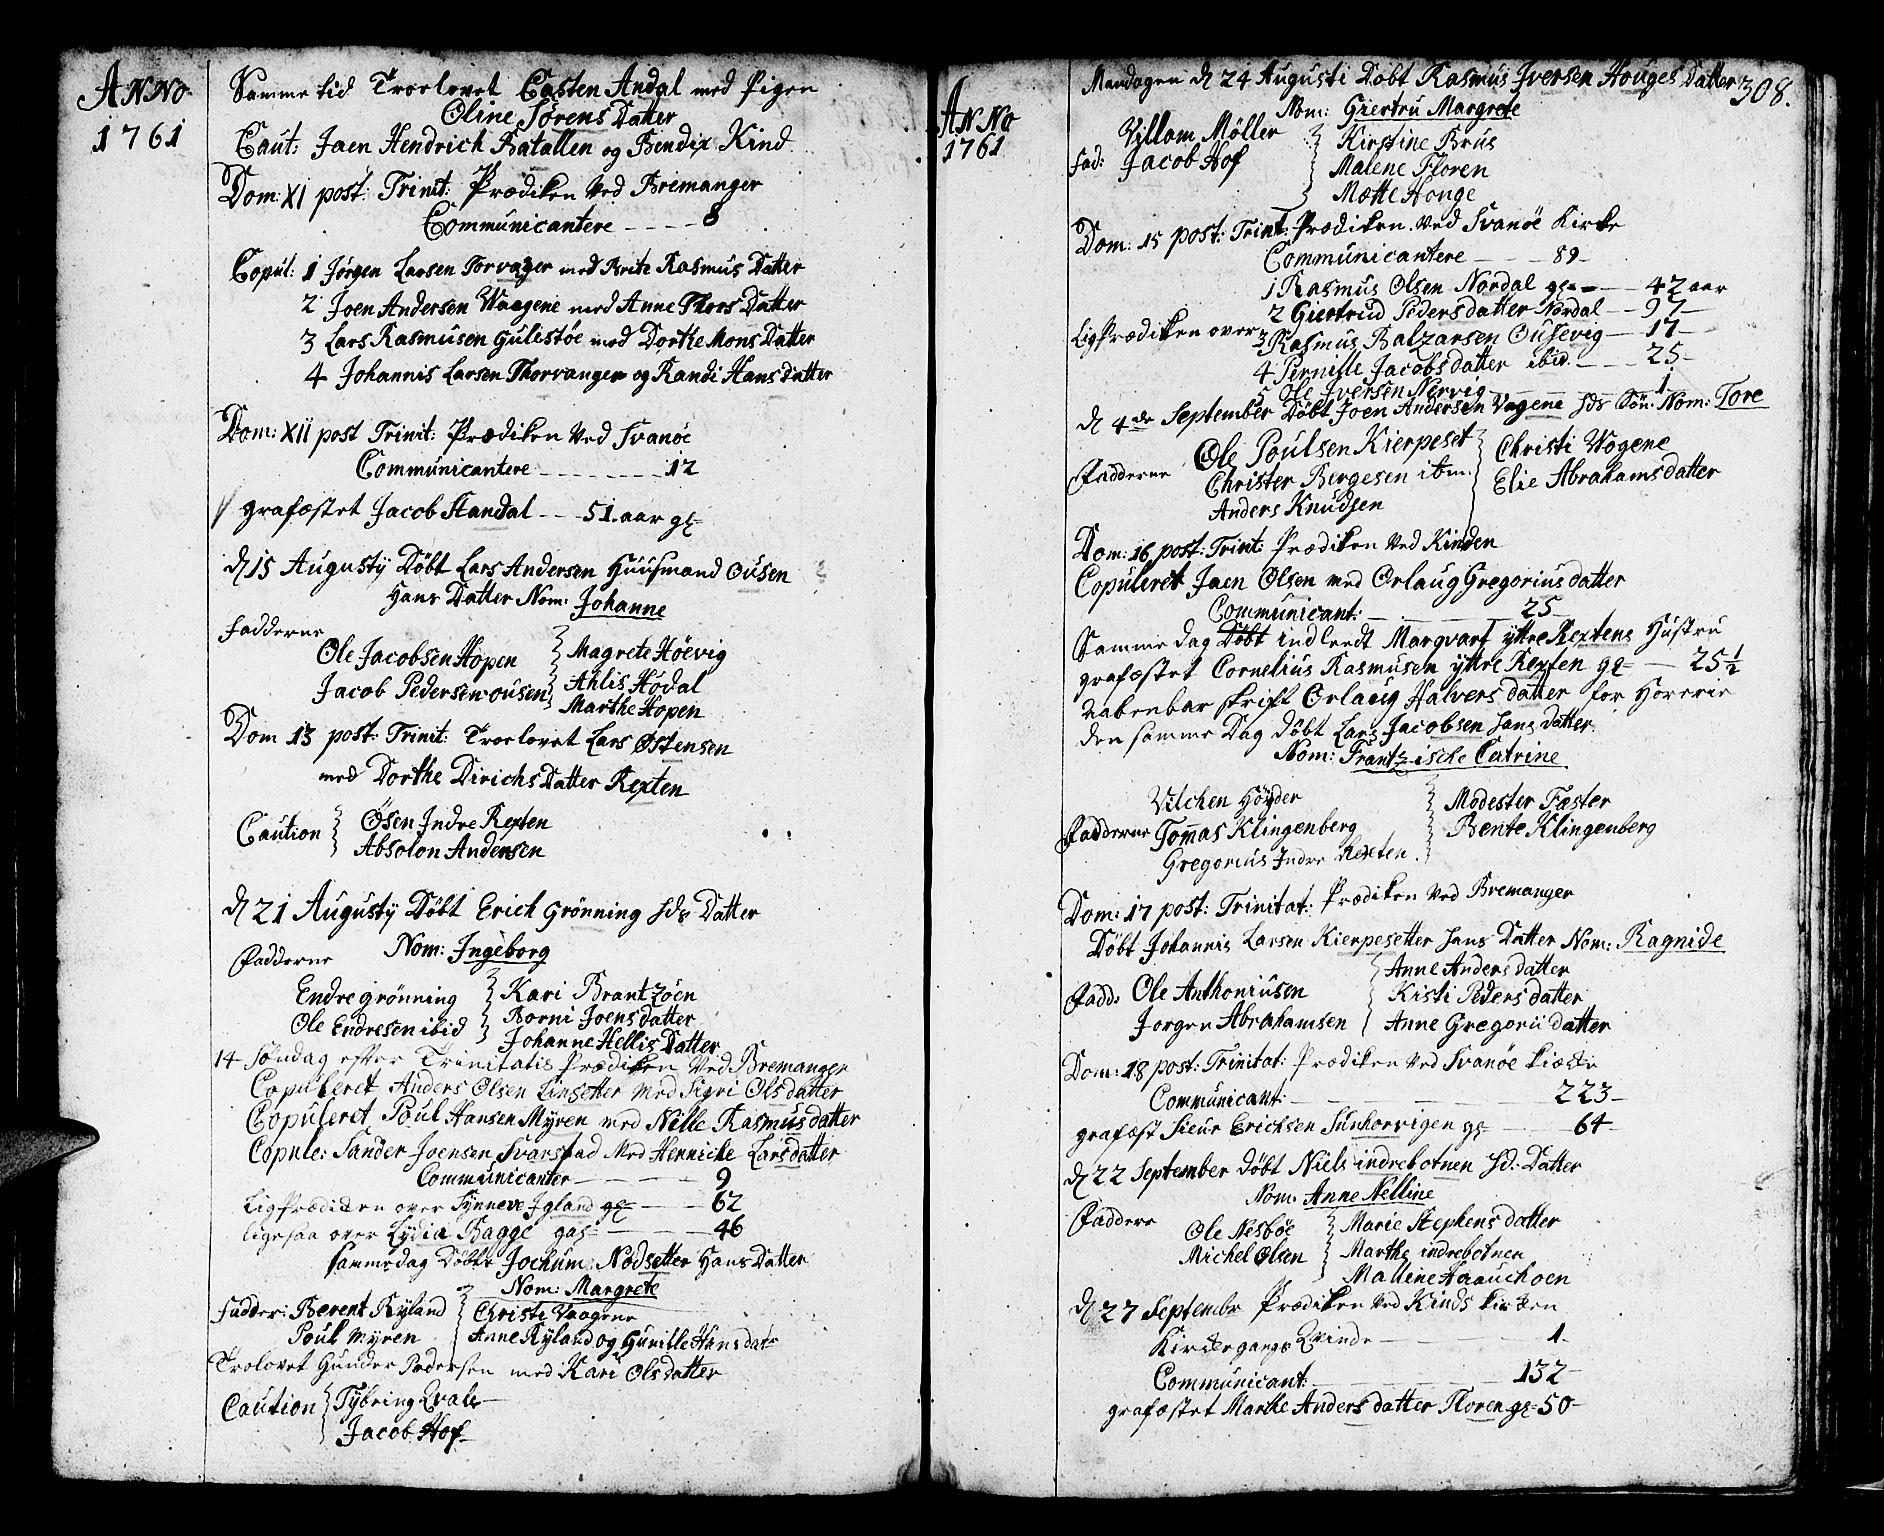 ANNo
1761
Samme tid Troelovet Casten Andal med Pigen
Oline Sörens Datter
Caut: Jaen Hendrich Batallen og Bendix Kind
Dom: XI post: Trinit: Prædiken Ved Bremanger
Communicantere - - - - 8
Copul: 1 Jörgen Larsen Torvager med Brite Rasmus Datter
2 Joen Andersen Waagene med Anne Thors Datter
3 Lars Rasmusen Gulestöe med Dorthe Mons Datter
4 Johannis Larsen Thorvanger og Randi Hans Datter
Dom: XII post Trinit: Prædiken Ved Svanöe
Communicantere - - - - - 12
grafæstet Jacob Standal - - - 51. aar gl
d 15 Augusty Döbt Lars Andersen Huusmand Ousen
Hans Datter Nom: Johanne
Fadderne
Ole Jacobsen Hopen Magrete Höevig
Jacob Pedersen ousen Ahlis Hödal
Marthe Hopen
Dom 13 post. Trinit: Troelovet Lars Östensen
med Dorthe Dirichs Datter Rexten
Caution Ösen Indre Rexten
Absolon Andersen
d 21 Augusty Döbt Erich Grönning hds Datter
Nom: Ingeborg
Fadderne
Endre grönning Kari Brantzöen
Ole Endresen ibid Borni Joens datter
Johanne Hellis Datter
14 Söndag efter Trinitatis Prædiken Ved Bremanger
Copuleret Anders Olsen Linsetter med Sigri Ols datter
Copuleret Poul Hansen Myren med Nille Rasmus datter
Copule: Sander Joensen Svarstad Med Hennicke Lars datter
Communicanter - - - - - 9
Ligprædiken over Synneve Igland gl - - - 62
ligesaa over Lydia Bagge gal - - - 46
sammedag Döbte Jochum Nödsetter Hans Datter
Nom: Margrete
Fadder: Berent Ryland Christi Vaagene
Poul Myren Anne Ryland og Gunille Hans dat
Trolovet Gunder Pedersen med Kari Ols datter
Caution Tybring Qvale
Jacob Hof
ANNo
1761
308.
Mandagen d 24 Augusti Döbt Rasmus Iversen Houges Datter
Nom: Giertru Margrete
Villom Möller Kirstine Brús
Fad: Jacob Hof Malene Floren
Mætte Houge
Dom: 15 post: Trint: Prædiken. Ved Svanöe Kirke
Communicantere - - - 89
1 Rasmus Olsen Nordal gl - - 42 aar
2 Giertrud Peders datter Nordal - - 97
Ligprædiken over 3 Rasmus Balzarsen Ousevig - 17
4 Pernille Jacobs datter ibid - - - 25
5 Ole Iversen Nervig - - 1
d 4de September Döbt Joen Andersen Vagene hds Sön. Nom: Tore
Ole Poulsen Kierpeset Christi Wogene
Fadderne Christer Bergesen ibm. Elie Abrahams datter
Anders Knudsen
Dom: 16 post: Trint: Prædiken Ved Kinden
Copuleret Jaen Olsen med Orlaug Gregorius datter
Communicant: - - - 25
Samme dag Döbt indleedt Marqvart yttre Rextens Hustru
grafæstet Cornelius Rasmusen yttre Rexten gl - - 25½
aabenbar skrift Orlaug Halvers datter for Horerie
den samme Dag döbt Lars Jacobsen hans datter
Nom: Frantzische Catrine
Vilchen Höyder Modester Faster
Fadderne Tomas Klingenberg Bente Klingenberg
Gregorius Indre Rexten
Dom: 17 post: Trinitat: Prædiken Ved Bremanger
Döbt Johannis Larsen Kierpesetter hans Datter Nom: Ragnide
Anne Anders datter
Fadd: Ole Anthoniusen Kisti Peders datter
Jörgen Abrahamsen Anne Gregorii datter
Dom: 18 post: Trinitat: Prædiken Ved Svanöe
Communicant: - - - 223
grafæst Sieur Erichsen Sunhorvigen gl - - 64
d 22 September döbt Niels indrebotnen hd: Datter
Nom: Anne Nelline
Faddere
Ole Nesböe Marie Stephens datter
Michel Olsen Marthe indrebotnen
Malline Haauchoen
d 27 Septembr Prædiken Ved Kinds Kircken
Kirckegangs Qvinde - - - 1
Communicant: - - - 132
grafæstet Marthe Anders datter Floren gl - 50